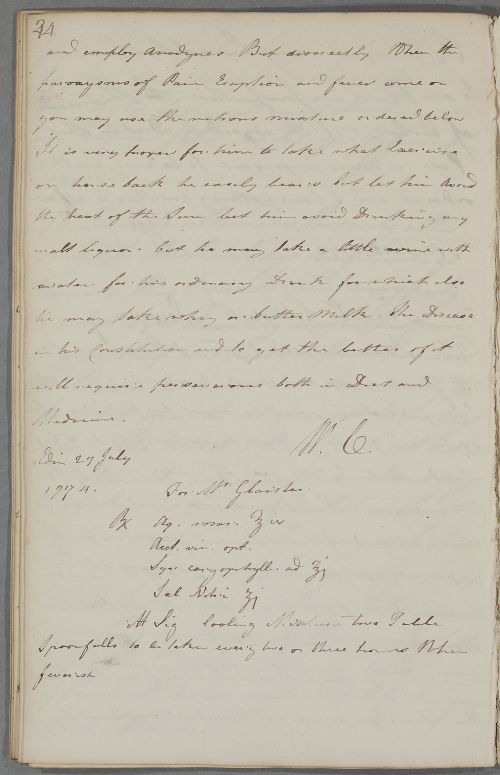 24
and employ Anodynes But discreetly When the
paroxysms of Pain Eruption and fever come on
you may use the nitrous mixture ordered below
It is very proper for him to take what Exercise
on horse back he easily bears but let him avoid
the heat of the Sun let him avoid Drinking any
malt liquor. but he may take a little wine with
water for his ordinary Drink for which also
he may take whey or butter Milk. The Disease
in his Constitution and to get the better of it
will require perseverance both in Diet and
Medicine.
W. C.
Edin 27 July
1774.
For Mr Glaister.
Rx Aq. rosar. ℥iv
Acet. vin. opt.
Syr. caryophyll. ad ℥j
Sal Nitri ʒj
M Sig cooling Mixture two Table
Spoonfulls to be taken every two or three hours When
feverish